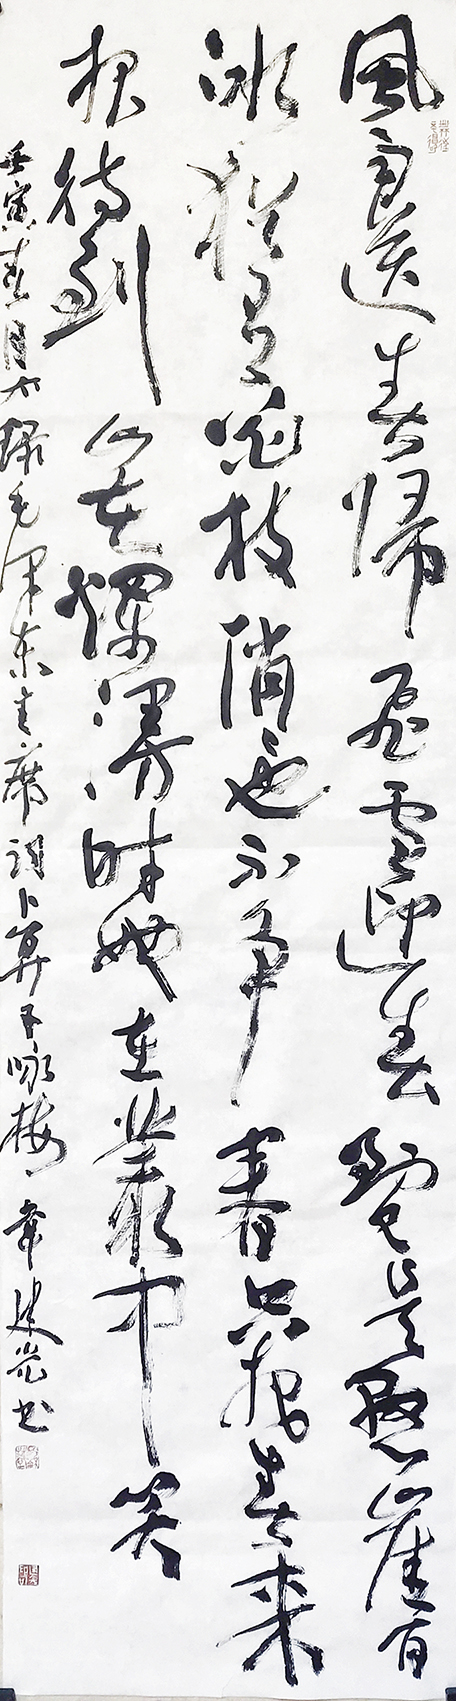 風雨送春歸飛雪迎春到已是懸崖百
冰猶有花枝俏也不争春只把春来
报待到山花爛漫时她在叢中笑
壬寅春月录毛泽东主席词卜算子咏梅 韋建光书